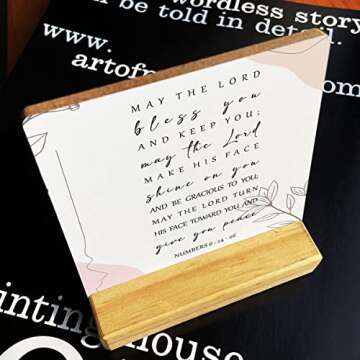 wordless story
be told in detail.
www.
artof
om
MAY THE LORD
bless you
AND KEEP YOU;
may the Lord
MAKE HIS FACE
shine on you
AND BE GRACIOUS TO YOU;
MAY THE LORD TURN
HIS FACE TOWARD YOU AND
give you peace
NUMBERS 6:24-26
inting house